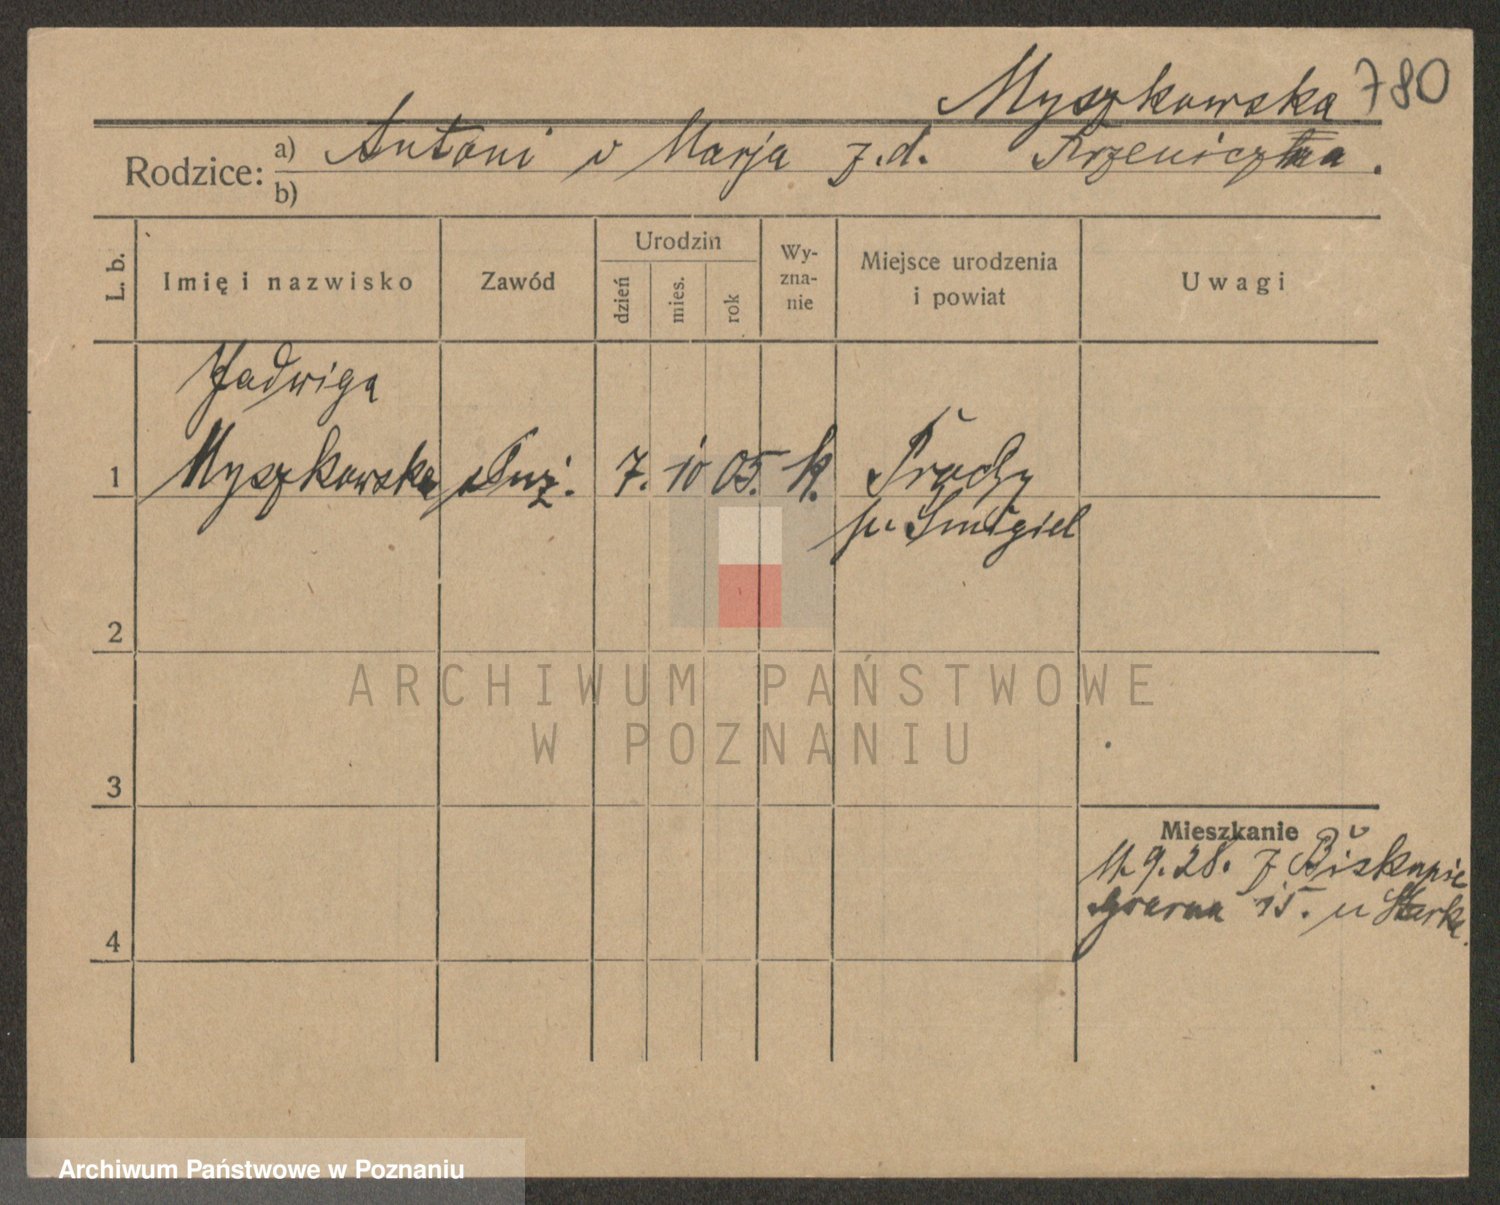 Myszkowska 780
Rodzice: a) Antoni i Marja z.d.
b)
L. b.
Imię i nazwisko
Zawód
Urodzin
dzień
mies.
rok
Wy-
zna-
nie
Miejsce urodzenia
i powiat
Uwagi
Jadwiga
1 Myszkowska służ. 7. 10 05. k.
p. Śmigiel
2
ARCHIWUM PAŃSTWOWE
W POZNANIU
3
Mieszkanie
9.28. z Biskupic
15. u
4
Archiwum Państwowe w Poznaniu